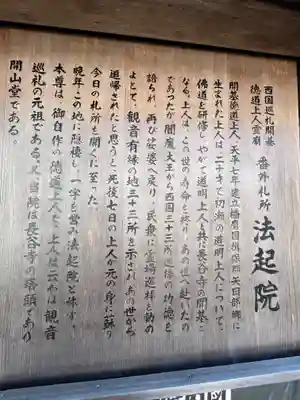 西国巡礼開基
徳道上人霊廟
番外札所
法起院
開基徳道上人、天平七年建立播磨国揖保郡矢田部郷に
生まれた上人は、二十才で初瀬の道明上人について、
佛道を研修し、やがて道明上人と共に長谷寺の開基と
なる。上人は、この世の寿命と終り、あの世へ赴いたの
であったが閻魔大王から西国三十三所
語られ、再び娑婆へ戻り、民衆に霊場巡拝を勧め
よとて、観音有縁の地三十三所を示され、あの世から
追帰されたと思うと、死後七日の上人が元の身に蘇り
今日の札所を開くに至った。
晩年この地に隠棲し、一宇を営み法起院と称す。
本尊は、御自作の徳道上人で、上人は云わば観音
巡礼の元祖である。又当院は長谷寺の塔頭であり
開山堂である。